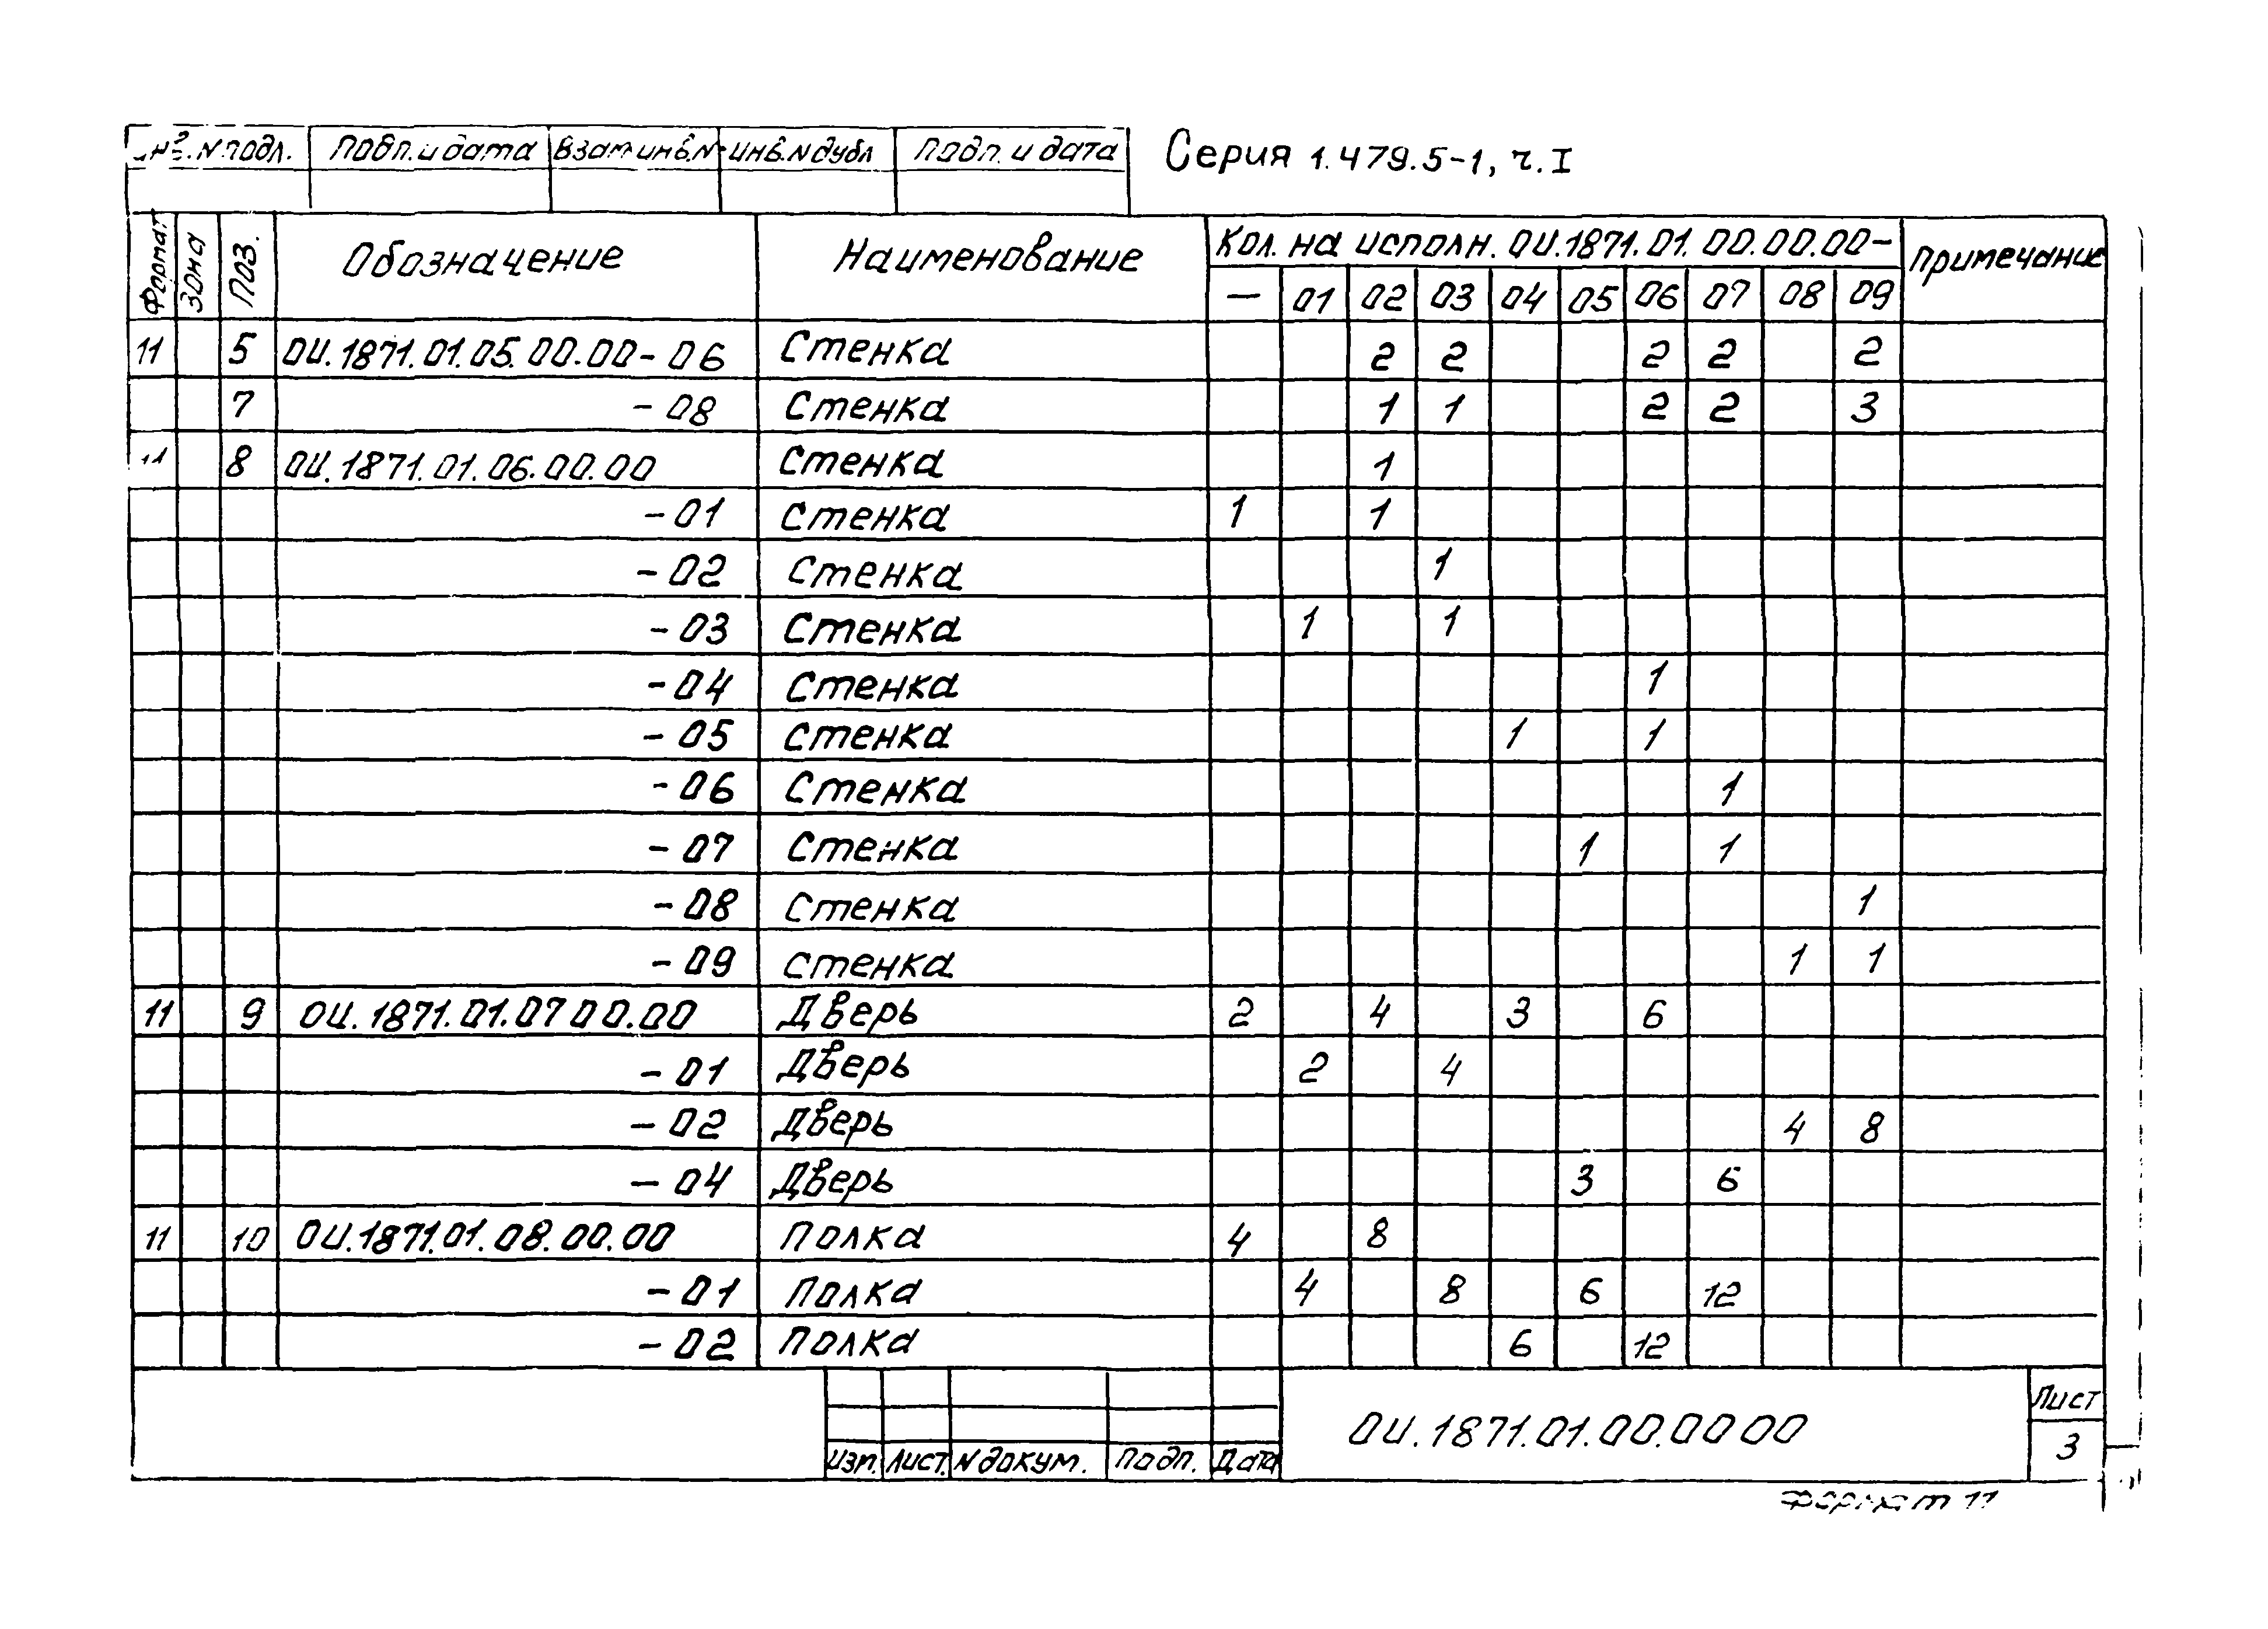 Инв. N подл. Подп. и дата Взам инв. N Инв. N дубл Подп. и дата Серия 1.479.5-1, ч. I
Формат Зона Поз. Обозначение Наименование Кол. на исполн. ОИ.1871.01.00.00.00- Примечание
— 01 02 03 04 05 06 07 08 09
11 5 ОИ.1871.01.05.00.00-06 Стенка 2 2 2 2 2
7 -08 Стенка 1 1 2 2 3
11 8 ОИ.1871.01.06.00.00 Стенка 1
-01 Стенка 1 1
-02 Стенка 1
-03 Стенка 1 1
-04 Стенка 1
-05 Стенка 1 1
-06 Стенка 1
-07 Стенка 1 1
-08 Стенка 1
-09 Стенка 1 1
11 9 ОИ.1871.01.07 00.00 Дверь 2 4 3 6
-01 Дверь 2 4
-02 Дверь 4 8
-04 Дверь 3 6
11 10 ОИ.1871.01.08.00.00 Полка 4 8
-01 Полка 4 8 6 12
-02 Полка 6 12
Изм. Лист. N докум. Подп. Дата ОИ.1871.01.00.00 00 Лист
3
Формат 11